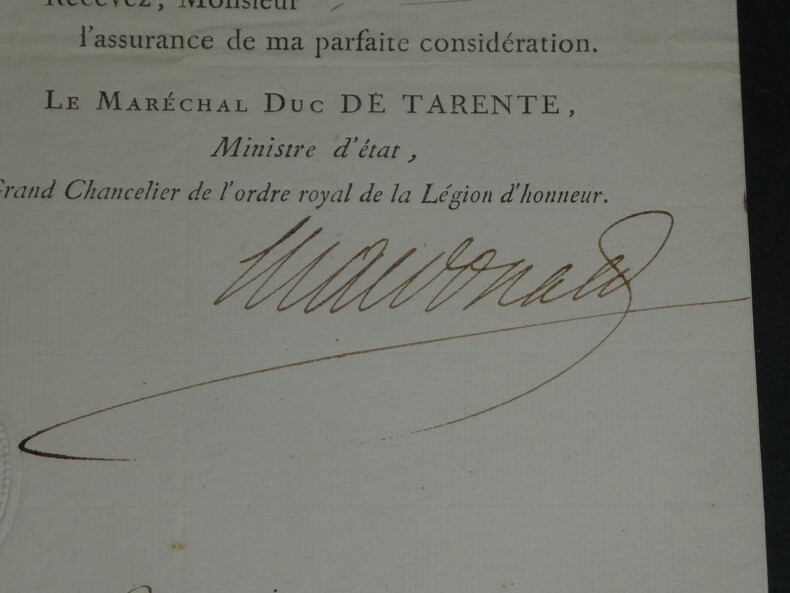 Recevez, Monsieur
l'assurance de ma parfaite considération.
LE MARÉCHAL DUC DE TARENTE,
Ministre d'état,
Grand Chancelier de l'ordre royal de la Légion d'honneur.
Macdonald